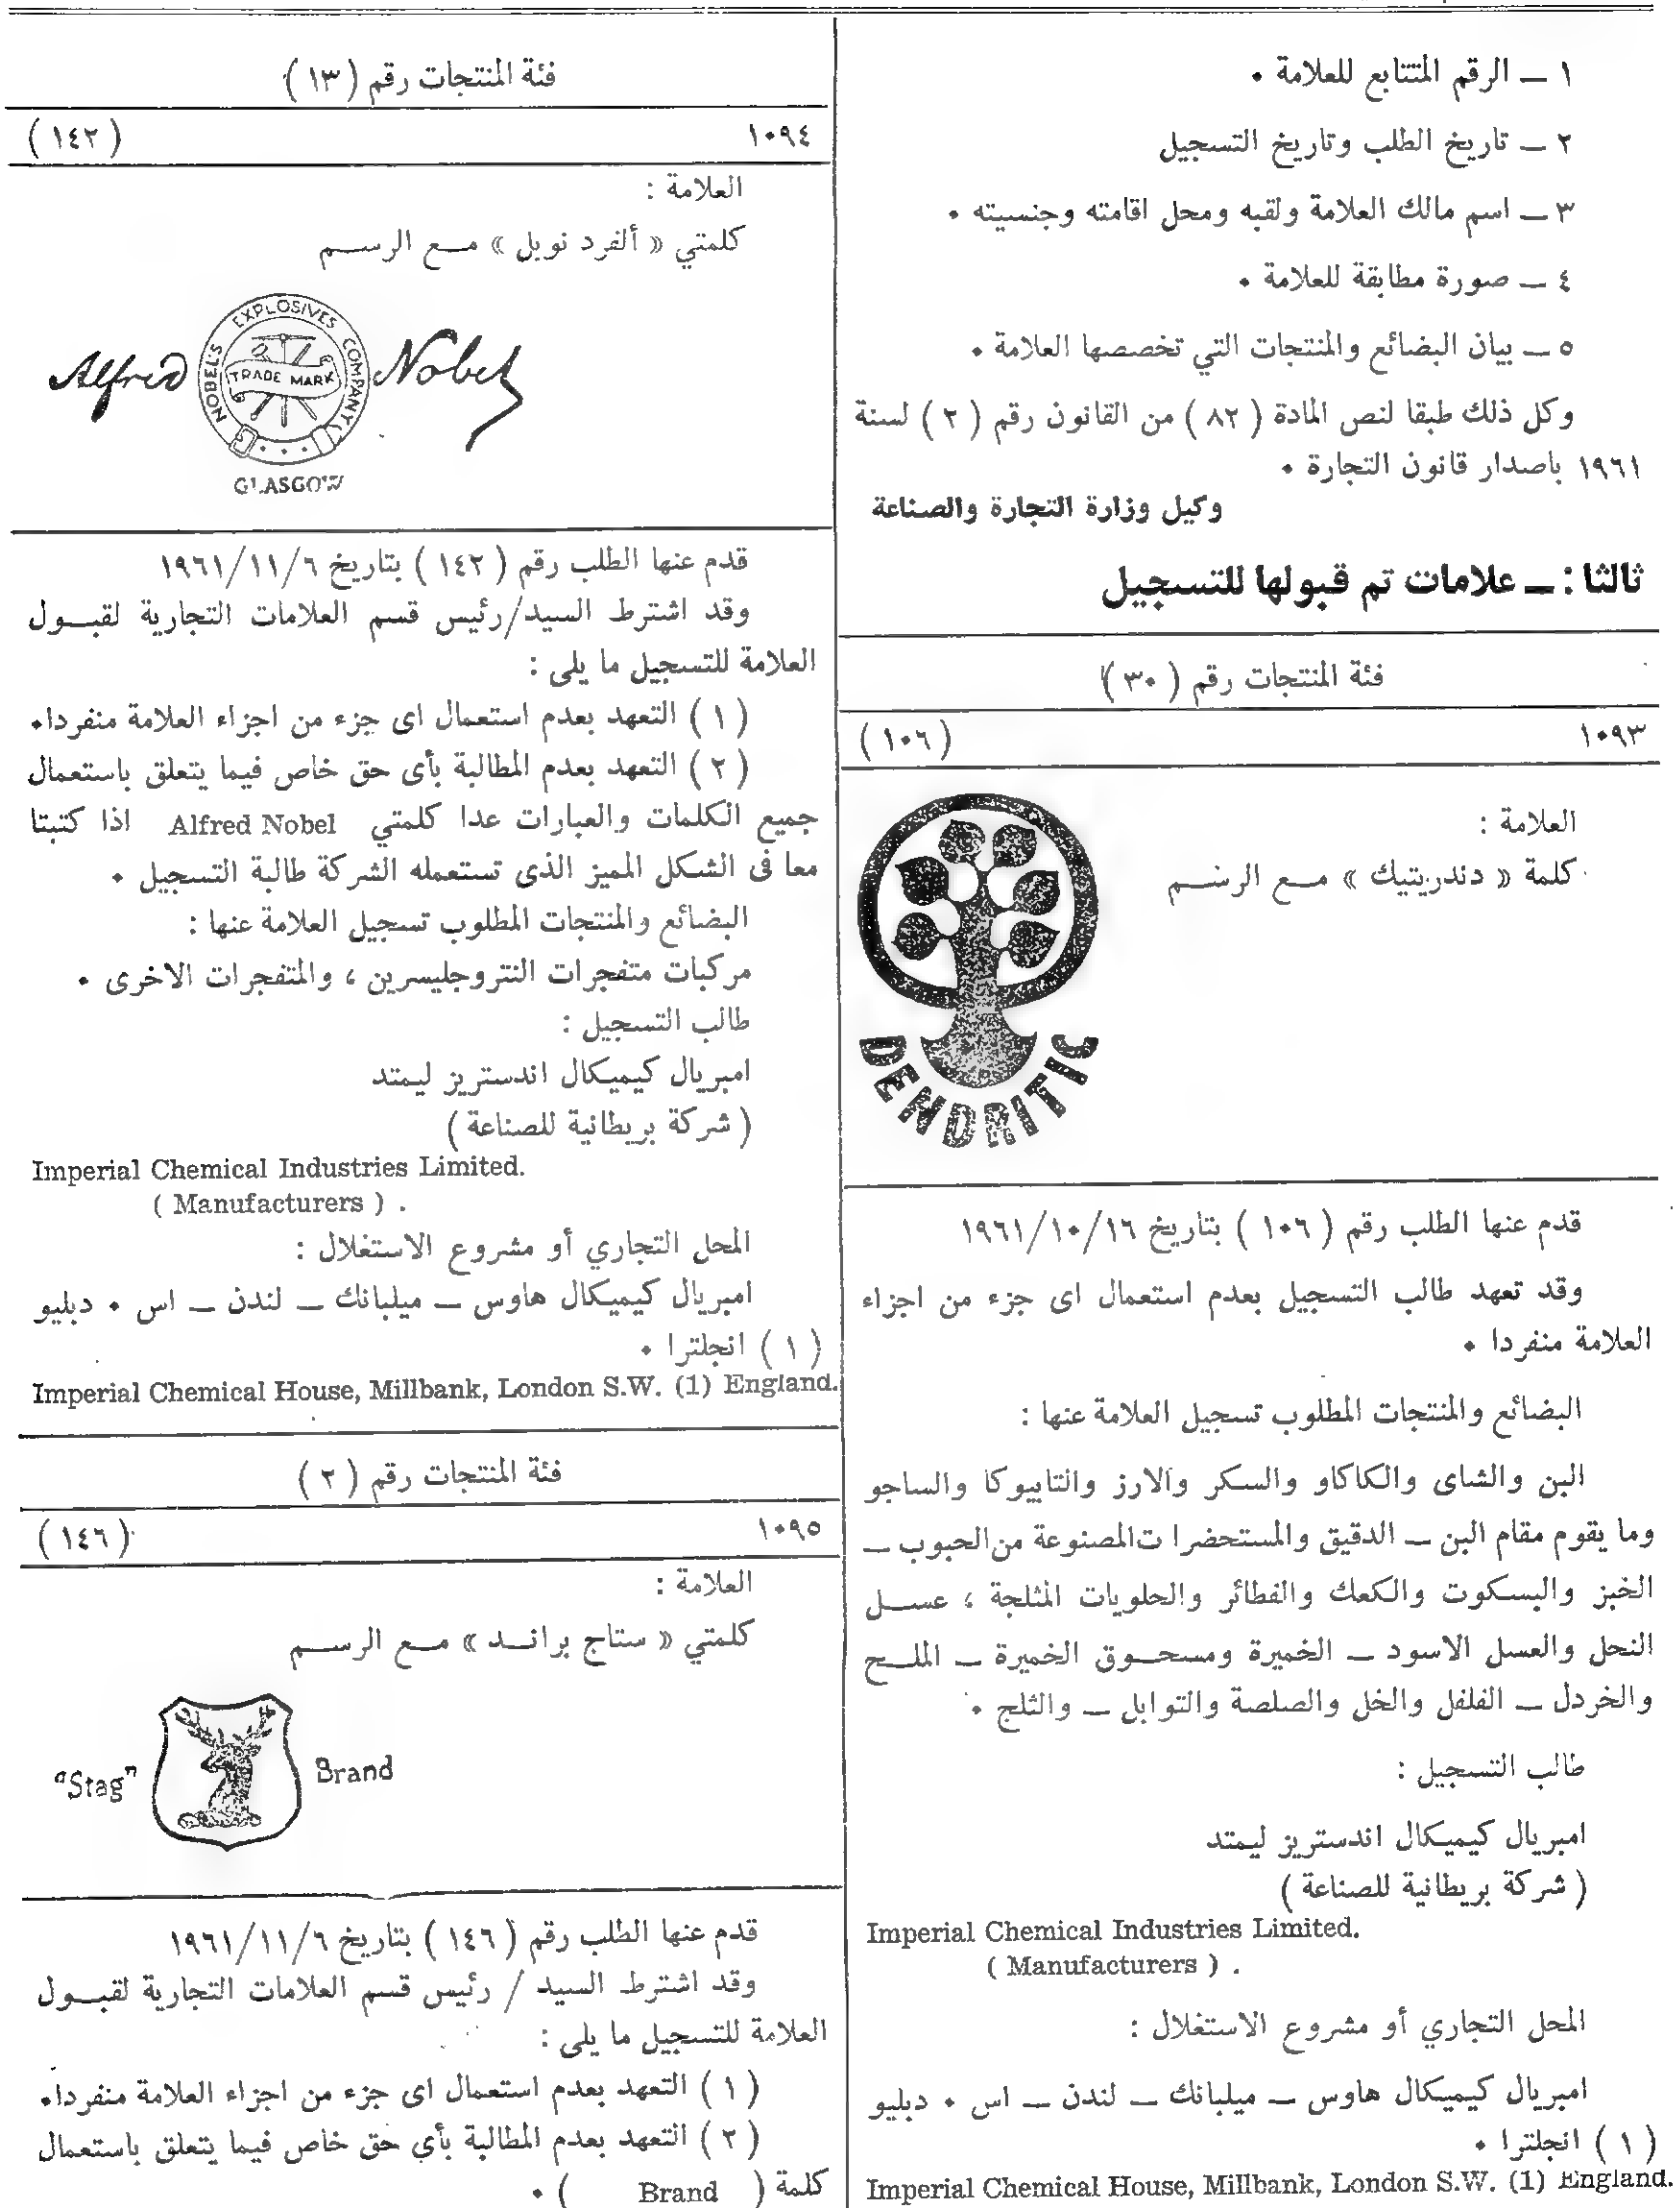 ١ — الرقم المتتابع للعلامة .
٢ — تاريخ الطلب وتاريخ التسجيل
٣ — اسم مالك العلامة ولقبه ومحل اقامته وجنسيته .
٤ — صورة مطابقة للعلامة .
٥ — بيان البضائع والمنتجات التي تخصصها العلامة .
وكل ذلك طبقا لنص المادة ( ٨٢ ) من القانون رقم ( ٢ ) لسنة
١٩٦١ باصدار قانون التجارة .
وكيل وزارة التجارة والصناعة
ثالثا : — علامات تم قبولها للتسجيل
فئة المنتجات رقم ( ٣٠ )
١٠٩٣ ( ١٠٦ )
العلامة :
كلمة « دندريتيك » مـــع الرســـم
DENDRITIC
قدم عنها الطلب رقم ( ١٠٦ ) بتاريخ ١٩٦١/١٠/١٦
وقد تعهد طالب التسجيل بعدم استعمال اى جزء من اجزاء
العلامة منفردا .
البضائع والمنتجات المطلوب تسجيل العلامة عنها :
البن والشاى والكاكاو والسكر والارز والتابيوكا والساجو
وما يقوم مقام البن — الدقيق والمستحضرا ت المصنوعة من الحبوب —
الخبز والبسكوت والكعك والفطائر والحلويات المثلجة ، عســـل
النحل والعسل الاسود — الخميرة ومسحـــوق الخميرة — الملـــح
والخردل — الفلفل والخل والصلصة والتوابل — والثلج .
طالب التسجيل :
امبريال كيميكال اندستريز ليمتد
( شركة بريطانية للصناعة )
Imperial Chemical Industries Limited.
( Manufacturers ) .
المحل التجاري أو مشروع الاستغلال :
امبريال كيميكال هاوس — ميلبانك — لندن — اس . دبليو
( ١ ) انجلترا .
Imperial Chemical House, Millbank, London S.W. (1) England.
فئة المنتجات رقم ( ١٣ )
١٠٩٤ ( ١٤٢ )
العلامة :
كلمتي « ألفرد نوبل » مـــع الرســـم
Alfred Nobel
NOBEL'S EXPLOSIVES COMPANY
TRADE MARK
GLASGOW
قدم عنها الطلب رقم ( ١٤٢ ) بتاريخ ١٩٦١/١١/٦
وقد اشترط السيد/رئيس قسم العلامات التجارية لقبـــول
العلامة للتسجيل ما يلى :
( ١ ) التعهد بعدم استعمال اى جزء من اجزاء العلامة منفردا.
( ٢ ) التعهد بعدم المطالبة بأى حق خاص فيما يتعلق باستعمال
جميع الكلمات والعبارات عدا كلمتي Alfred Nobel اذا كتبتا
معا فى الشكل المميز الذى تستعمله الشركة طالبة التسجيل .
البضائع والمنتجات المطلوب تسجيل العلامة عنها :
مركبات متفجرات النتروجليسرين ، والمتفجرات الاخرى .
طالب التسجيل :
امبريال كيميكال اندستريز ليمتد
( شركة بريطانية للصناعة )
Imperial Chemical Industries Limited.
( Manufacturers ) .
المحل التجاري أو مشروع الاستغلال :
امبريال كيميكال هاوس — ميلبانك — لندن — اس . دبليو
( ١ ) انجلترا .
Imperial Chemical House, Millbank, London S.W. (1) England.
فئة المنتجات رقم ( ٢ )
١٠٩٥ ( ١٤٦ )
العلامة :
كلمتي « ستاج برانـــد » مـــع الرســـم
"Stag" Brand
قدم عنها الطلب رقم ( ١٤٦ ) بتاريخ ١٩٦١/١١/٦
وقد اشترط السيد / رئيس قسم العلامات التجارية لقبـــول
العلامة للتسجيل ما يلى :
( ١ ) التعهد بعدم استعمال اى جزء من اجزاء العلامة منفردا.
( ٢ ) التعهد بعدم المطالبة بأي حق خاص فيما يتعلق باستعمال
كلمة ( Brand ) .